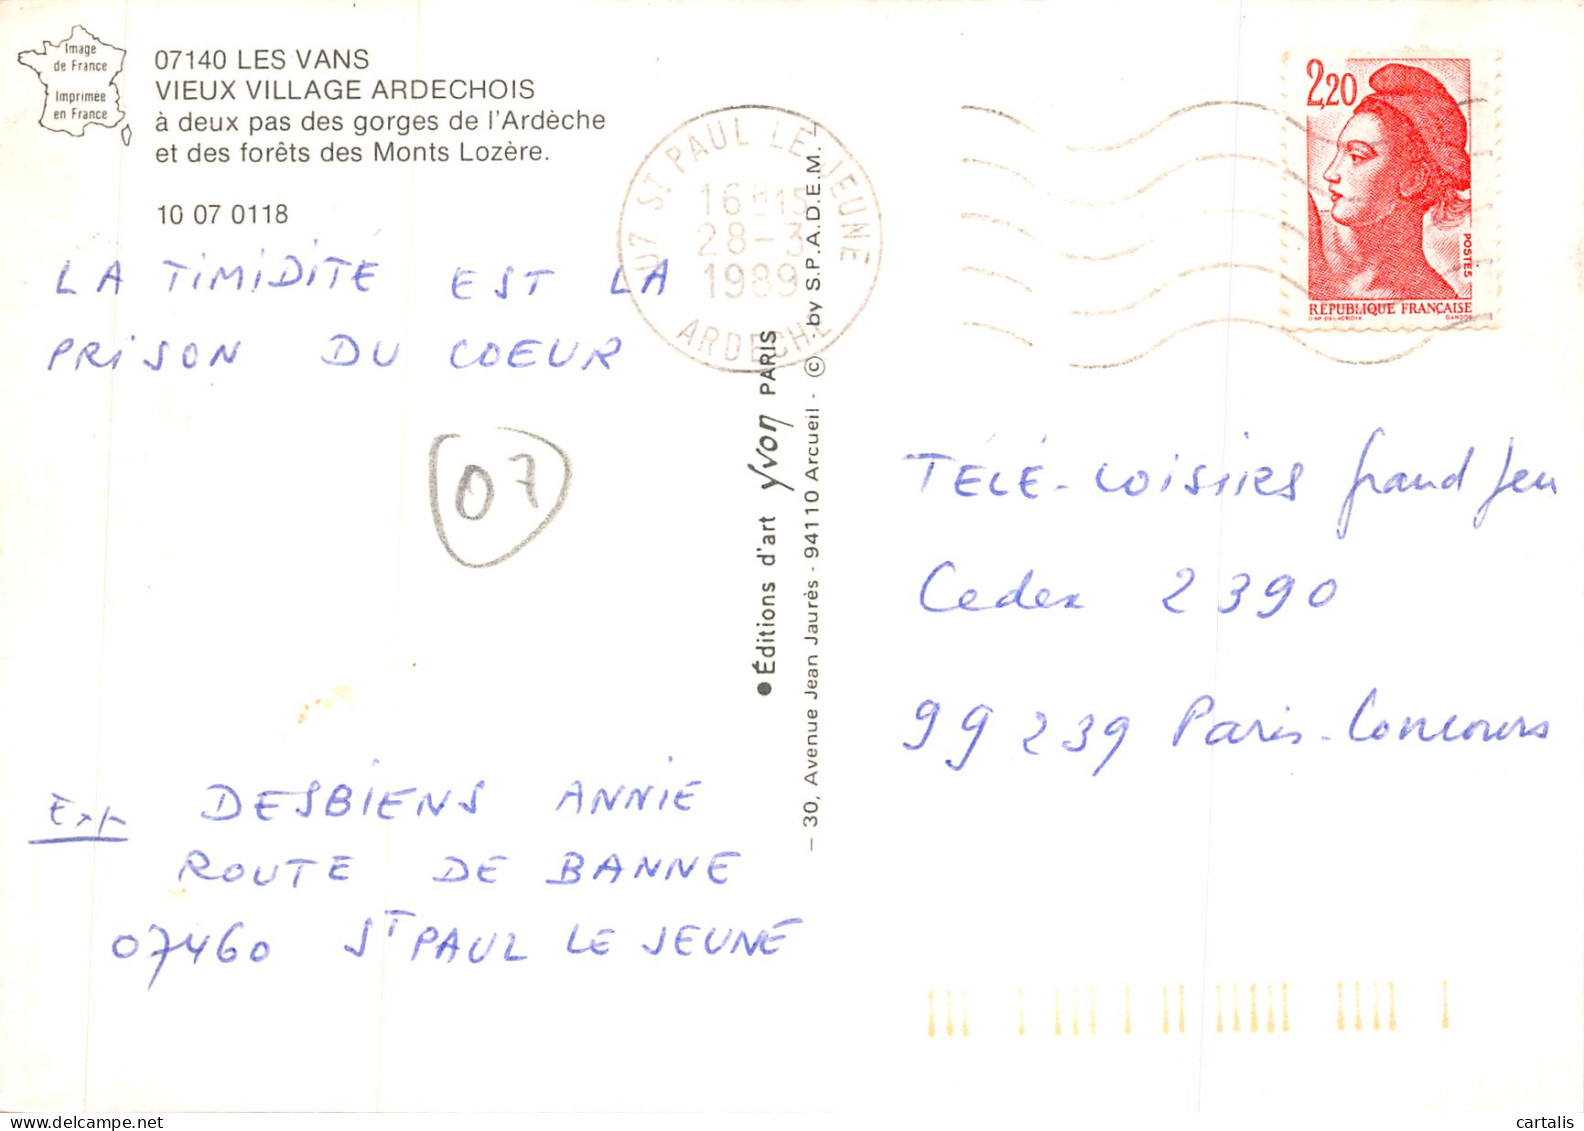 Image
de France
Imprimée
en France
07140 LES VANS
VIEUX VILLAGE ARDECHOIS
à deux pas des gorges de l'Ardèche
et des forêts des Monts Lozère.
10 07 0118
LA TIMIDITÉ EST LA
PRISON DU COEUR
07
Exp
DESBIENS ANNIE
ROUTE DE BANNE
07460 ST PAUL LE JEUNE
●Éditions d'art yvon PARIS
– 30, Avenue Jean Jaurès - 94110 Arcueil - © by S.P.A.D.E.M.
07 ST PAUL LE JEUNE
16H15
28-3
1989
ARDECHE
2,20
POSTES
RÉPUBLIQUE FRANÇAISE
D'AP. DELACROIX GANDON
TÉLÉ-LOISIRS grand Jeu
Cedex 2390
99239 Paris-Concours
cartalis